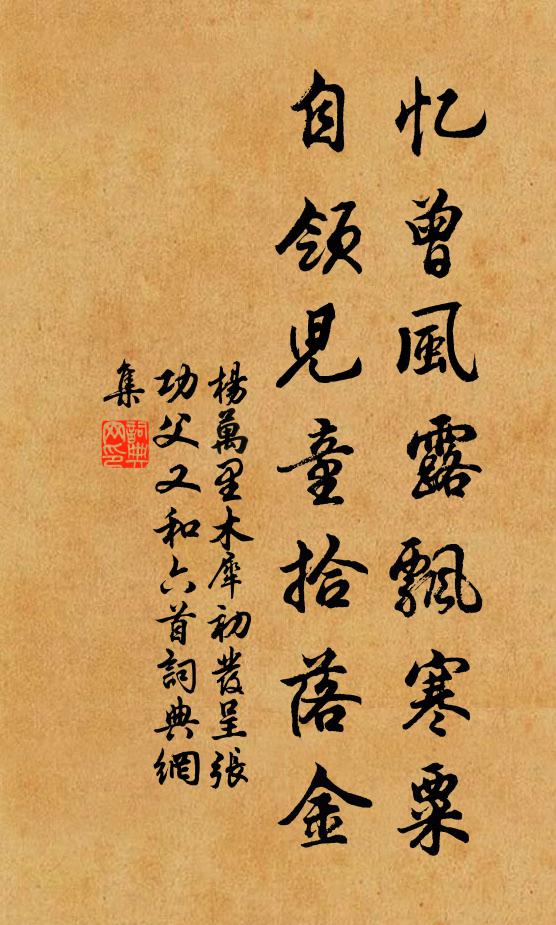 忆曾風露飄寒粟
自領児童拾落金
楊萬里木犀初發呈張
功父又和六首詞典網
集
詞典網印